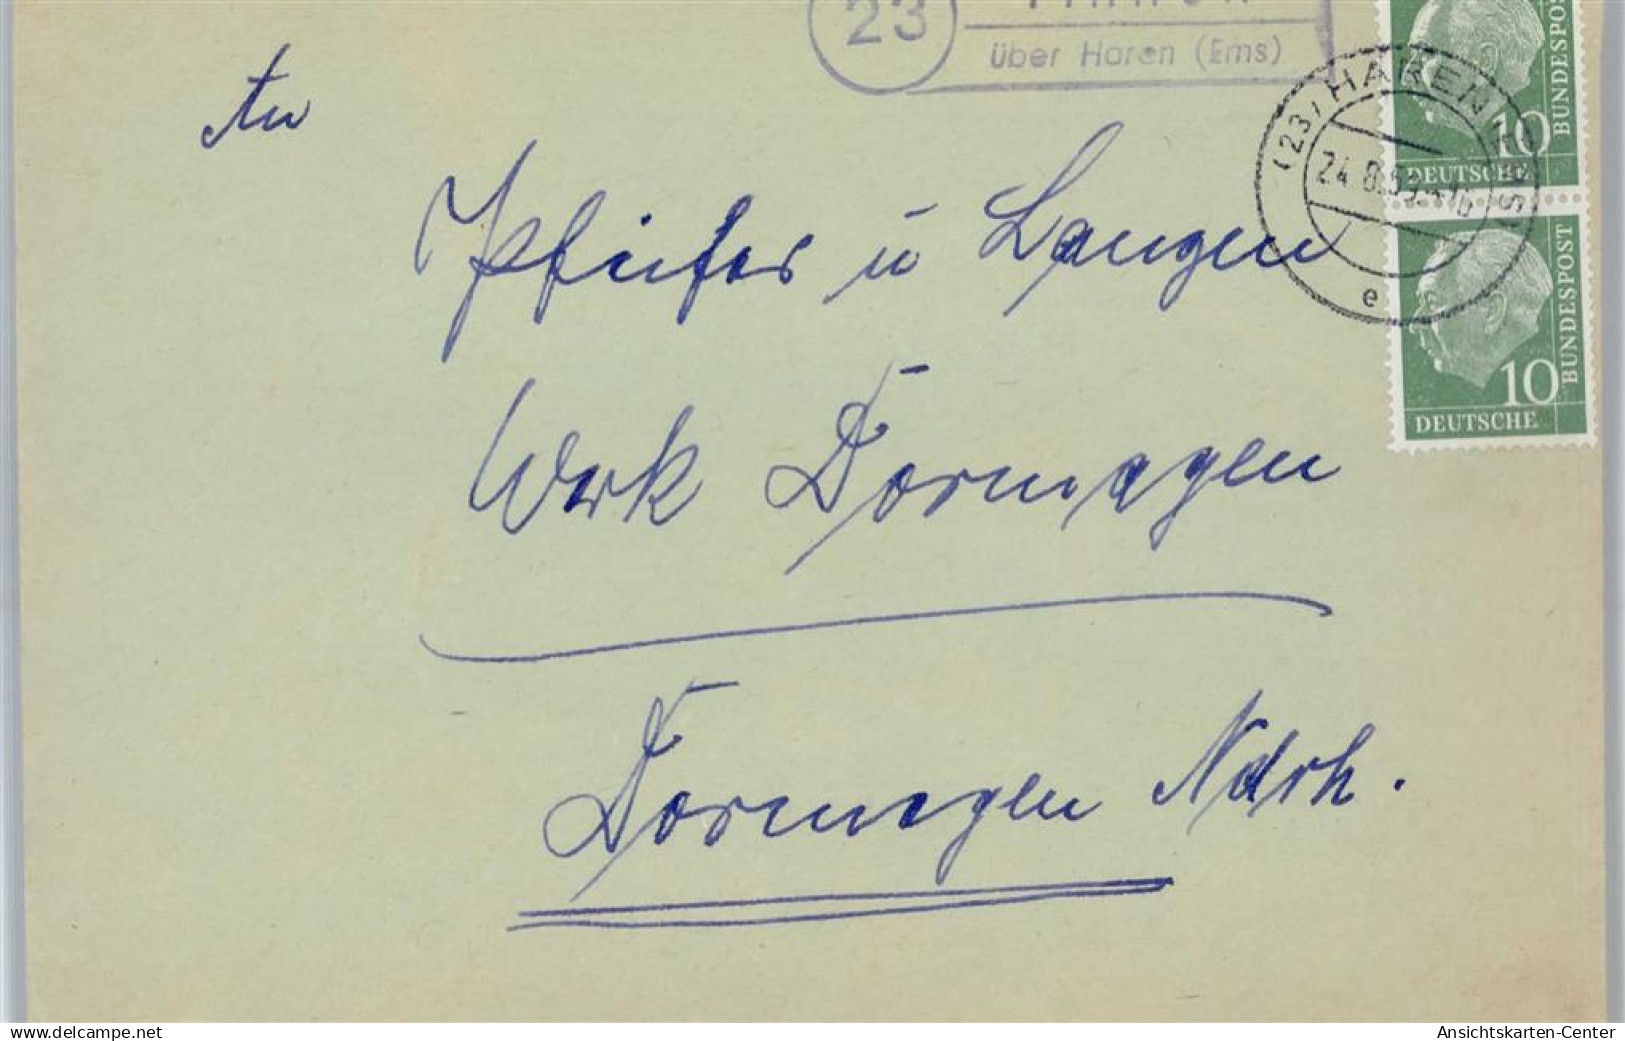 23
über Haren (Ems)
(23) HAREN (EMS)
24.8.59
e
10
BUNDESPOST
DEUTSCHE
10
BUNDESPOST
DEUTSCHE
An
Pfeifer u Langen
Werk Dormagen
Dormagen Ndrh.
www.delcampe.net
Ansichtskarten-Center